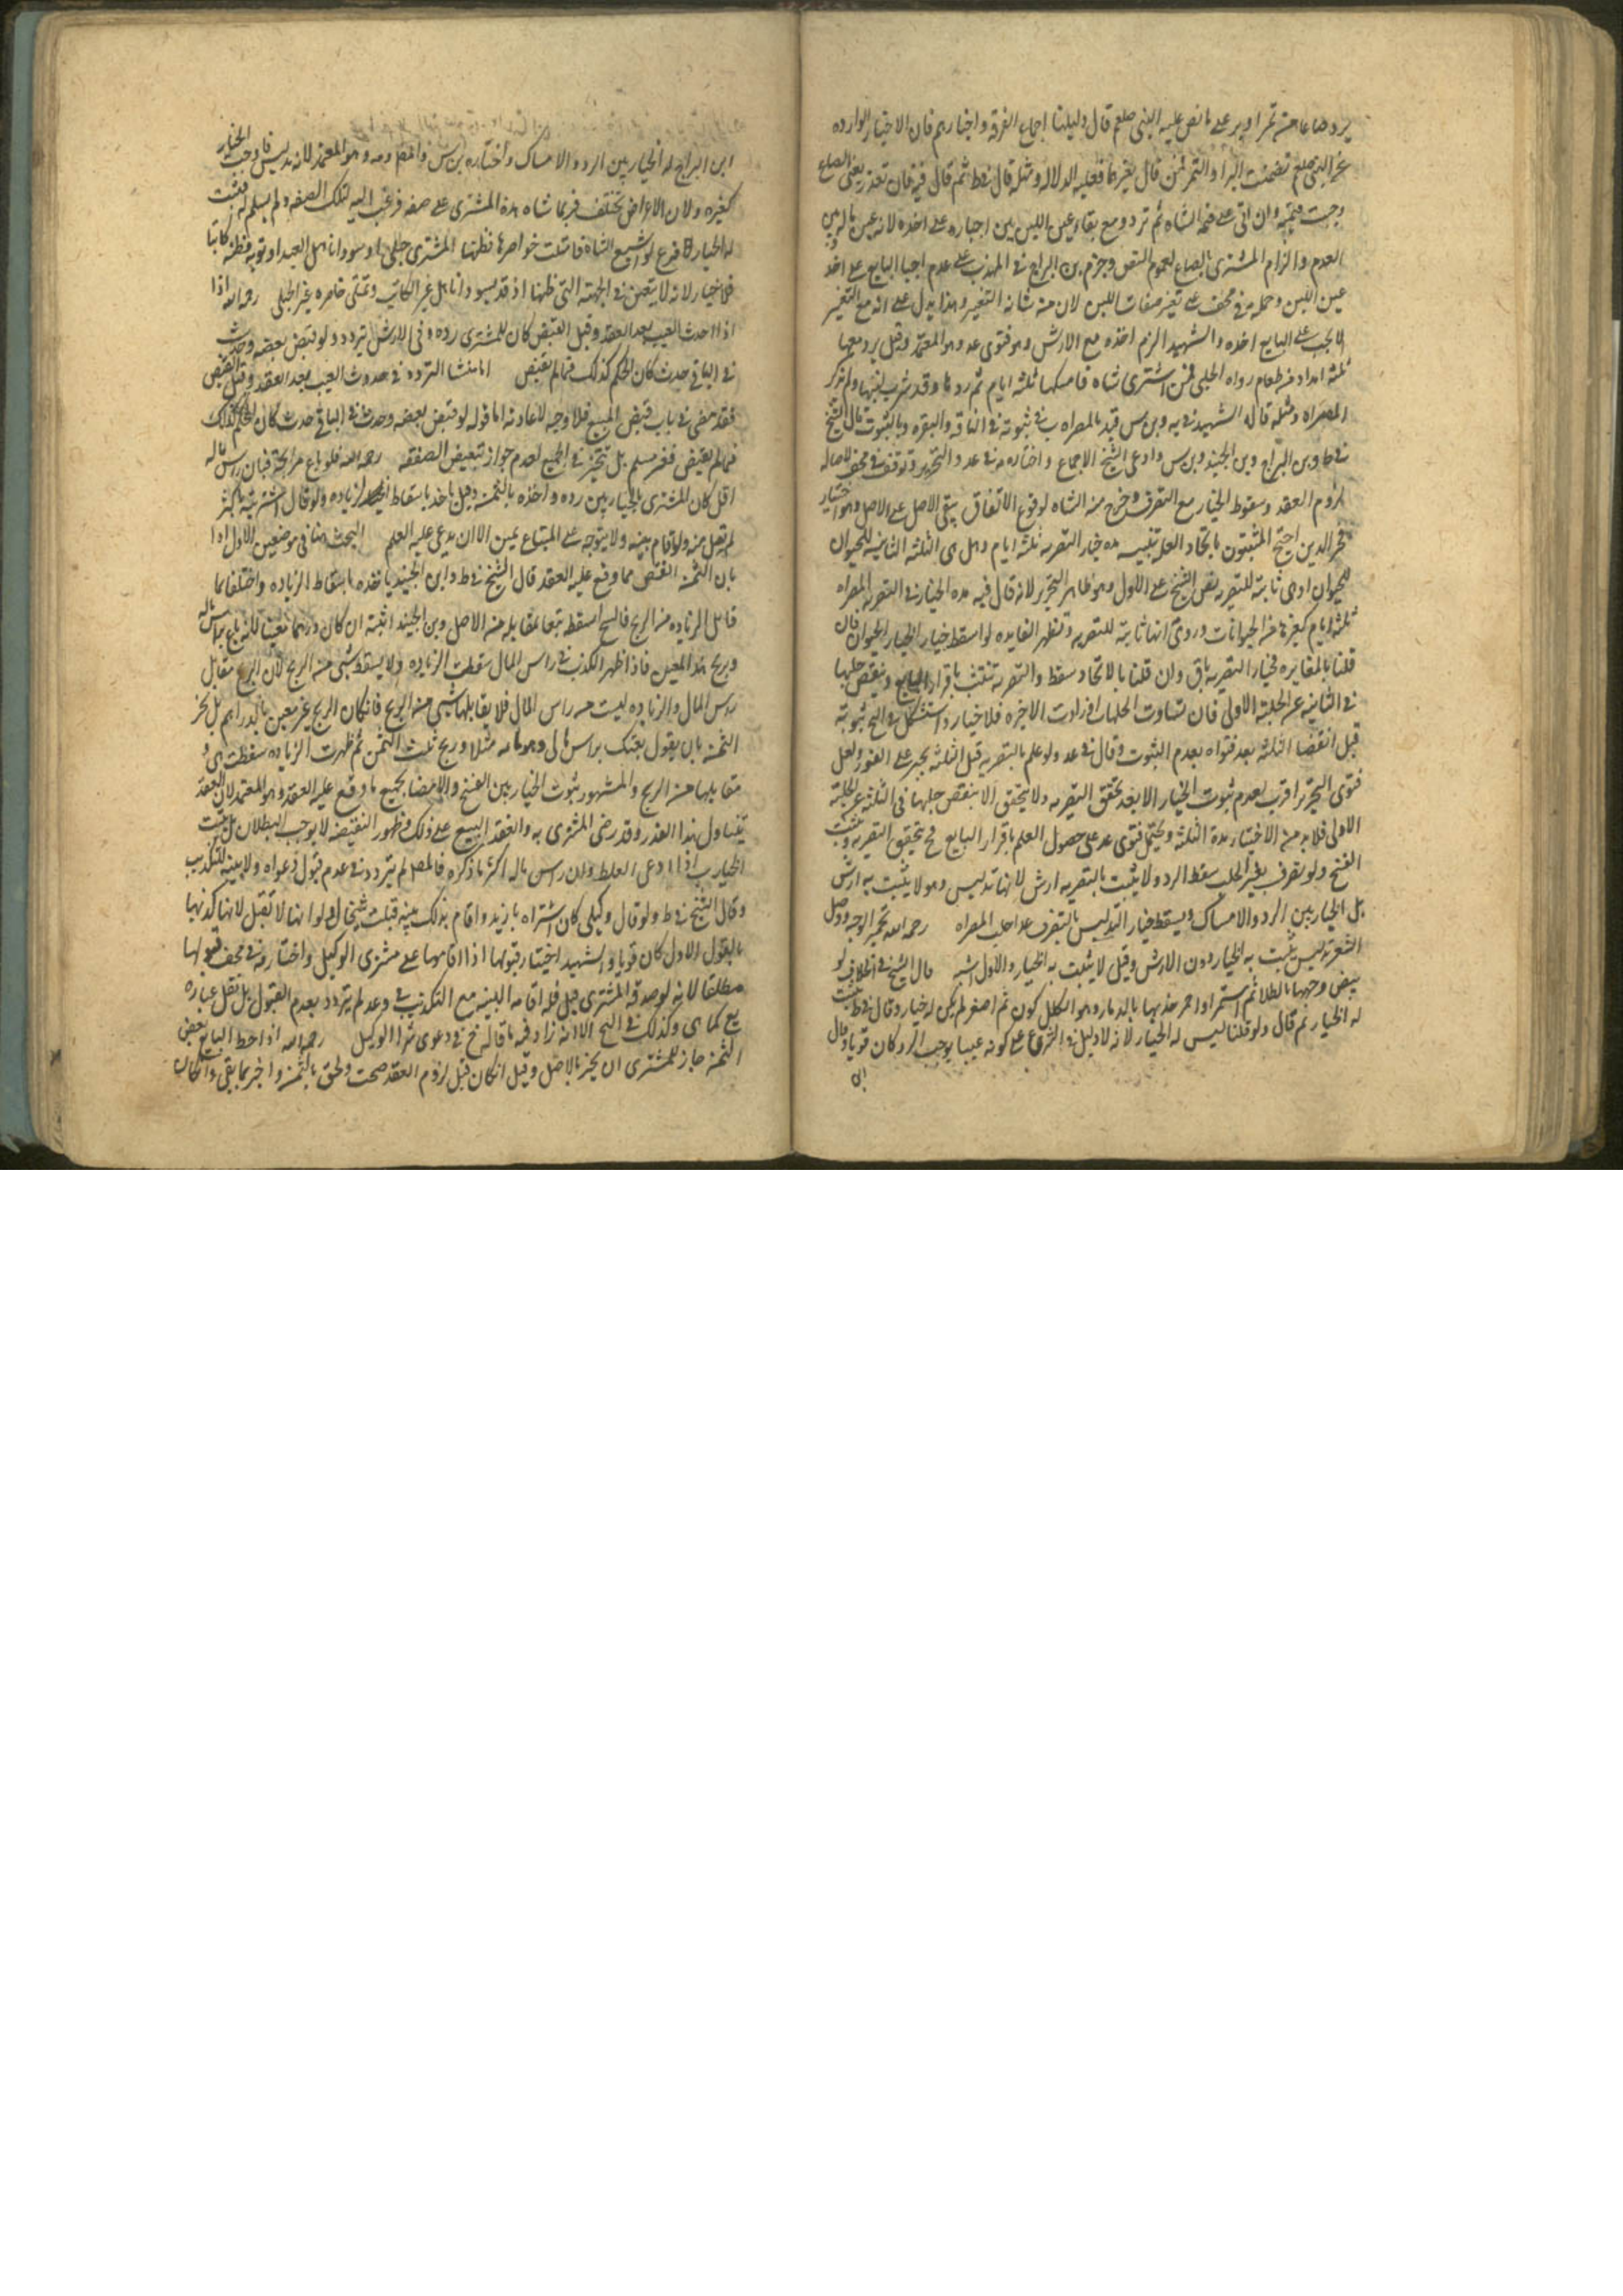 يرد صاعا من تمر او بر على ما نص عليه النبي صلعم قال دليلنا اجماع الفرقه واخبارهم فان الاخبار الوارده
عن النبي صلعم تضمنت البر او التمر فمن قال بغيرهما فعليه الدلاله ومثله قال في ط ثم قال فيه فان تعذر يعني الصاع
وجبت قيمته وان اتى على قيمه الشاه ثم تردد مع بقاء عين اللبن بين اجباره على اخذه لانه عين ماله بين
العدم والزام المشتري بالصاع لعموم النص وجزم بن البراج في المهذب على عدم اجبار البايع على اخذ
عين اللبن وحمله في مخلف على تغير صفات اللبن لان من شانه التغيير وهذا يدل على انه مع التغيير
لا يجب على البايع اخذه والشهيد الزم اخذه مع الارش وهو فتوى عد وهو المعتمد وقيل يرد معها
ثلثه امداد من طعام رواه الحلبي فمن اشترى شاه فامسكها ثلثه ايام ثم ردها وقد شرب لبنها ولم يذكر
المصراه ومثله قاله الشهيد في يه وبن س قيد بالمصراه ب في ثبوته في الناقه والبقره وبالثبوت قال الشيخ
في ط وبن البراج وبن الجنيد وبن س وادعى الشيخ الاجماع واختاره في عد والتحرير وتوقف في مخلف لاصاله
لزوم العقد وسقوط الخيار مع التصرف وخرج منه الشاه لوقوع الاتفاق يبقى الاصل على الاصل وهو اختيار
فخر الدين احتج المثبتون باتحاد العله تنبيه مده خيار التصريه ثلثه ايام وهل هي الثلثه الثابته للحيوان
للحيوان او هي ثابته للتصريه نص الشيخ على الاول وهو ظاهر التحرير لانه قال فيه مده الخيار في التصريه المصراه
ثلثه ايام كغيرها من الحيوانات وروي انها ثابته للتصريه وتظهر الفايده لو اسقط خيار الخيار الحيوان فان
قلنا بالمغايره فخيار التصريه باق وان قلنا بالاتحاد سقط والتصريه تثبت باقرار البايع وبنقص حلبها
في الثانيه عن الحلبه الاولى فان تساوت الحلبات او زادت الاخيره فلا خيار واستشكل في التح ثبوته
قبل انقضا الثلثه بعد فتواه بعدم الثبوت وقال في عد ولو علم بالتصريه قبل الثلثه تخير على الفور ولعل
فتوى التحرير اقرب لعدم ثبوت الخيار الا بعد تحقق التصريه ولا يتحقق الا بنقص حلبها في الثلثه عن الحلبه
الاولى فلا بد من الاختبار مدة الثلثه ويحتمل فتوى عد على حصول العلم باقرار البايع فح يتحقق التصريه ويثبت
الفسخ ولو تصرف بغير الحلب سقط الرد ولا يثبت بالتصريه ارش لانها تدليس وهو لا يثبت به ارش
بل الخيار بين الرد والامساك ويسقط خيار التدليس بالتصرف عدا حلب المصراه رحمه الله تحمير الوجه ووصل
الشعر تدليس يثبت به الخيار دون الارش وقيل لا يثبت به الخيار والاول اشبه قال الشيخ في الخلاف لو
بيض وجهها بالطلا ثم اسمر او احمر خديها بالدمام وهو الكلكون ثم اصفر لم يكن له خيار وقال في ط يثبت
له الخيار ثم قال ولو قلنا ليس له الخيار لانه لا دليل في الشرع على كونه عيبا يوجب الرد كان قويا وقال
ابن
ابن البراج له الخيار بين الرد والامساك واختاره بن س والمص وهو المعتمد لانه تدليس فاوجب الخيار
كغيره ولان الاغراض تختلف فربما شاه هذه المشتري على صفه فرغب اليه لتلك الصفه ولم يسلم له فيثبت
له الخيار فرع لو اشبع الشاة فامتلت خواصرها فظنها المشتري حبلى او سود انامل العبد او ثوبه فظنه كاتبا
فلا خيار لانه لا يتعين في الجهة التي ظنها اذ قد يسود انامل غير الكاتب وتمتلي خاصره غير الحبلى رحمه الله اذا
اذا احدث العيب بعد العقد وقبل القبض كان للمشتري رده وفي الارش تردد ولو قبض بعضه وحدث
في الباقي حدث كان الحكم كذلك فيما لم يقبض اما منشا التردد في حدوث العيب بعد العقد وقبل القبض
فقد مضى في باب قبض المبيع فلا وجه لاعادته اما قوله لو قبض بعضه وحدث في الباقي حدث كان الحكم كذلك
فيما لم يقبض فغير مسلم بل يتخير في الجميع لعدم جواز تبعيض الصفقه رحمه الله فلو باع مرابحة فبان راس ماله
اقل كان للمشتري بالخيار بين رده واخذه بالثمن وقيل ياخذ باسقاط الزياده ولو قال اشتريته باكثر
لم يقبل منه ولو اقام بينه ولا يتوجه على المبتاع يمين الا ان يدعي عليه العلم البحث هنا في موضعين الاول اذا
بان الثمن انقص مما وقع عليه العقد قال الشيخ في ط وابن الجنيد ياخذه باسقاط الزياده واختلفا بما
قابل الزياده من الربح فالشيخ اسقط تبعا مقابله من الاصل وبن الجنيد اثبته ان كان درهما معينا لانه باع براس ماله
وربح هذا المعين فاذا ظهر الكذب في راس المال سقطت الزياده ولا يسقط شي من الربح لان الربح مقابل
راس المال والزياده ليست من راس المال فلا يقابلها شي من الربح فان كان الربح غير معين بالدراهم بل بجزء
الثمن بان يقول بعتك براس مالي وهو مائه مثلا وربح ثلث الثمن ثم ظهرت الزياده سقطت هي و
مقابلها من الربح والمشهور ثبوت الخيار بين الفسخ والامضا بجميع ما وقع عليه العقد وهو المعتمد لان العقد
تناول هذا القدر وقد رضي المشتري به وانعقد البيع على ذلك وظهور النقيصه لا يوجب البطلان بل يثبت
الخيار ب اذا ادعى الغلط وان راس ماله اكثر ما ذكره فالمص لم يتردد في عدم قبول دعواه ولا بينته للتكذيب
وقال الشيخ في ط ولو قال وكيلي كان اشتراه بازيد واقام بذلك بينه قبلت ثم قال ولو انها لا تقبل لانها كذبها
بالقول الاول كان قويا والشهيد اختار قبولها اذا اقامها على مشتري الوكيل واختار في مخلف قبولها
مطلقا لانه لو صدقه المشتري قبل فله اقامه البينه مع التكذيب وفي عد لم يتردد بعدم القبول بل نقل عباره
يع كما هي وكذلك في التح الا انه زاد فيه ما قاله خ في دعوى شرا الوكيل رحمه الله اذا حط البايع بعض
الثمن جاز للمشتري ان يخبر بالاصل وقيل ان كان قبل لزوم العقد صحت ولحق بالثمن واخبر بما بقي وان كان